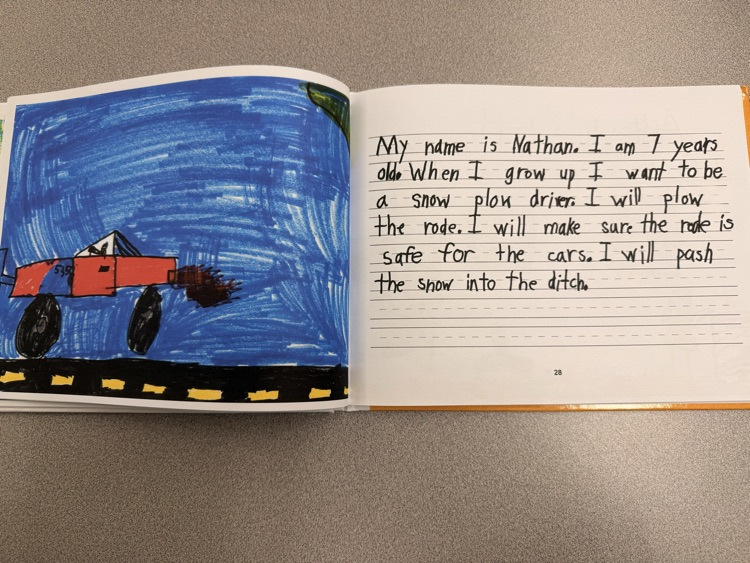 My name is Nathan. I am 7 years
old. When I grow up I want to be
a snow plow driver. I will plow
the rode. I will make sure the rode is
safe for the cars. I will pash
the snow into the ditch.
28